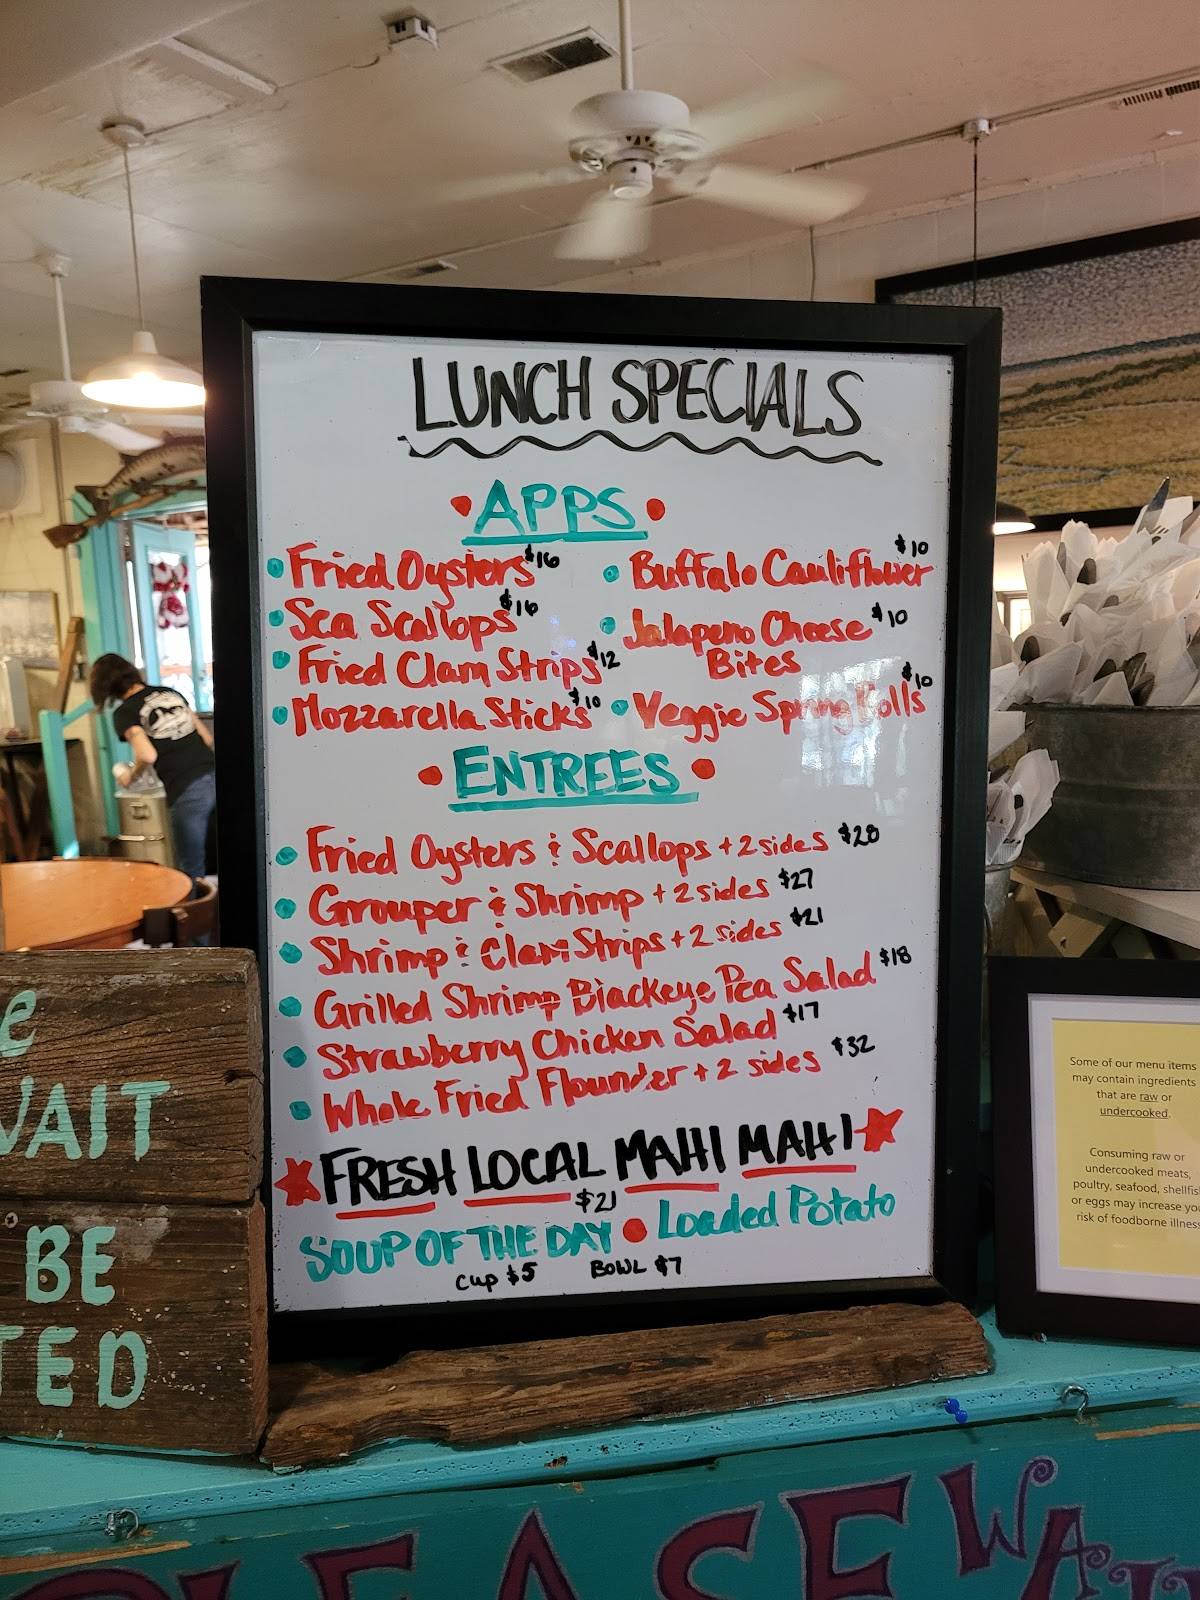 LUNCH SPECIALS
• APPS •
• Fried Oysters $16
• Sea Scallops $16
• Fried Clam Strips $12
• Mozzarella Sticks $10
• Buffalo Cauliflower $10
• Jalapeno Cheese $10
Bites
• Veggie Spring Rolls $10
• ENTREES •
• Fried Oysters & Scallops + 2 sides $28
• Grouper & Shrimp + 2 sides $27
• Shrimp & Clam Strips + 2 sides $21
• Grilled Shrimp Blackeye Pea Salad $18
• Strawberry Chicken Salad $17
• Whole Fried Flounder + 2 sides $32
★ FRESH LOCAL MAHI MAHI ★
$21
SOUP OF THE DAY • Loaded Potato
Cup $5 BOWL $7
e
WAIT
BE
TED
Some of our menu items
may contain ingredients
that are raw or
undercooked.
Consuming raw or
undercooked meats,
poultry, seafood, shellfis
or eggs may increase you
risk of foodborne illness
PLEASE WAIT